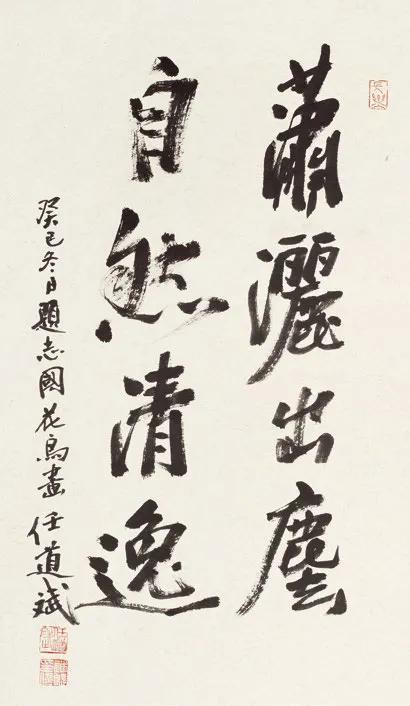 瀟灑出塵
自然清逸
癸巳冬日題志國花鳥畫 任道斌